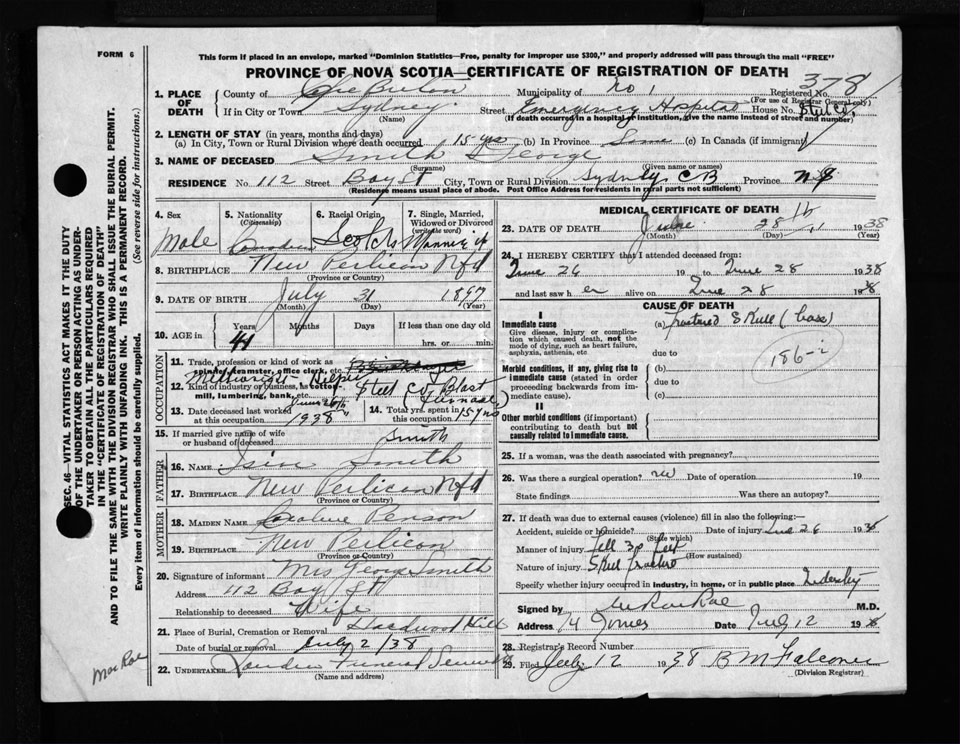 FORM 6
This form if placed in an envelope, marked "Dominion Statistics—Free, penalty for improper use $300," and properly addressed will pass through the mail "FREE"
PROVINCE OF NOVA SCOTIA—CERTIFICATE OF REGISTRATION OF DEATH
378
1. PLACE OF DEATH
County of Cape Breton Municipality of No 1 Registered No.
(For use of Registrar General only)
If in City or Town Sydney Street Emergency Hospital House No. Steel Co.
(Name) (If death occurred in a hospital or institution, give the name instead of street and number)
2. LENGTH OF STAY (in years, months and days)
(a) In City, Town or Rural Division where death occurred 15 yrs (b) In Province Same (c) In Canada (if immigrant)
3. NAME OF DECEASED Smith George
(Surname) (Given name or names)
RESIDENCE No. 112 Street Bay St City, Town or Rural Division Sydney C B Province N S
(Residence means usual place of abode. Post Office Address for residents in rural parts not sufficient)
4. Sex Male
5. Nationality (Citizenship)
6. Racial Origin Scotch
7. Single, Married, Widowed or Divorced (write the word) Married
8. BIRTHPLACE New Perlican Nfd
(Province or Country)
9. DATE OF BIRTH July 31 1897
(Month) (Day) (Year)
10. AGE in Years Months Days If less than one day old
41 hrs. or min.
OCCUPATION
11. Trade, profession or kind of work as spinner, teamster, office clerk, etc.
Millwright Helper
12. Kind of industry or business, as cotton mill, lumbering, bank, etc. Steel Co Blast Furnace
13. Date deceased last worked at this occupation June 26th 1938
14. Total yrs. spent in this occupation 15 yrs
15. If married give name of wife or husband of deceased Smith
FATHER
16. NAME Smith
17. BIRTHPLACE New Perlican Nfd
(Province or Country)
MOTHER
18. MAIDEN NAME Caroline Penson
19. BIRTHPLACE New Perlican
(Province or Country)
20. Signature of informant Mrs George Smith
Address 112 Bay St
Relationship to deceased Wife
21. Place of Burial, Cremation or Removal Hardwood Hill
Date of burial or removal July 2/38
22. UNDERTAKER Funeral Service
(Name and address)
MEDICAL CERTIFICATE OF DEATH
23. DATE OF DEATH June 28th 1938
(Month) (Day) (Year)
24. I HEREBY CERTIFY that I attended deceased from:
June 26 19 to June 28 1938
and last saw h er alive on June 28 1938
CAUSE OF DEATH
I
Immediate cause
Give disease, injury or complication which caused death, not the mode of dying, such as heart failure, asphyxia, asthenia, etc
(a) Fractured Skull (base)
186-i
due to
Morbid conditions, if any, giving rise to immediate cause (stated in order proceeding backwards from immediate cause).
(b)
due to
(c)
II
Other morbid conditions (if important) contributing to death but not causally related to immediate cause.
25. If a woman, was the death associated with pregnancy?
26. Was there a surgical operation? no Date of operation 19
State findings Was there an autopsy?
27. If death was due to external causes (violence) fill in also the following:—
Accident, suicide or homicide? Date of injury June 26 1938
(State which)
Manner of injury fell 30 feet
(How sustained)
Nature of injury Skull fracture
Specify whether injury occurred in industry, in home, or in public place Industry
Signed by M.D.
Address Date July 12 19
28. Registrar's Record Number
29. Filed July 12 1938 B M Falconer
(Division Registrar)
SEC. 46—VITAL STATISTICS ACT MAKES IT THE DUTY OF THE UNDERTAKER OR PERSON ACTING AS UNDERTAKER TO OBTAIN ALL THE PARTICULARS REQUIRED IN THE "CERTIFICATE OF REGISTRATION OF DEATH" AND TO FILE THE SAME WITH THE DIVISION REGISTRAR WHO SHALL ISSUE THE BURIAL PERMIT.
WRITE PLAINLY WITH UNFADING INK. THIS IS A PERMANENT RECORD.
Every item of information should be carefully supplied. (See reverse side for instructions.)
MacRae